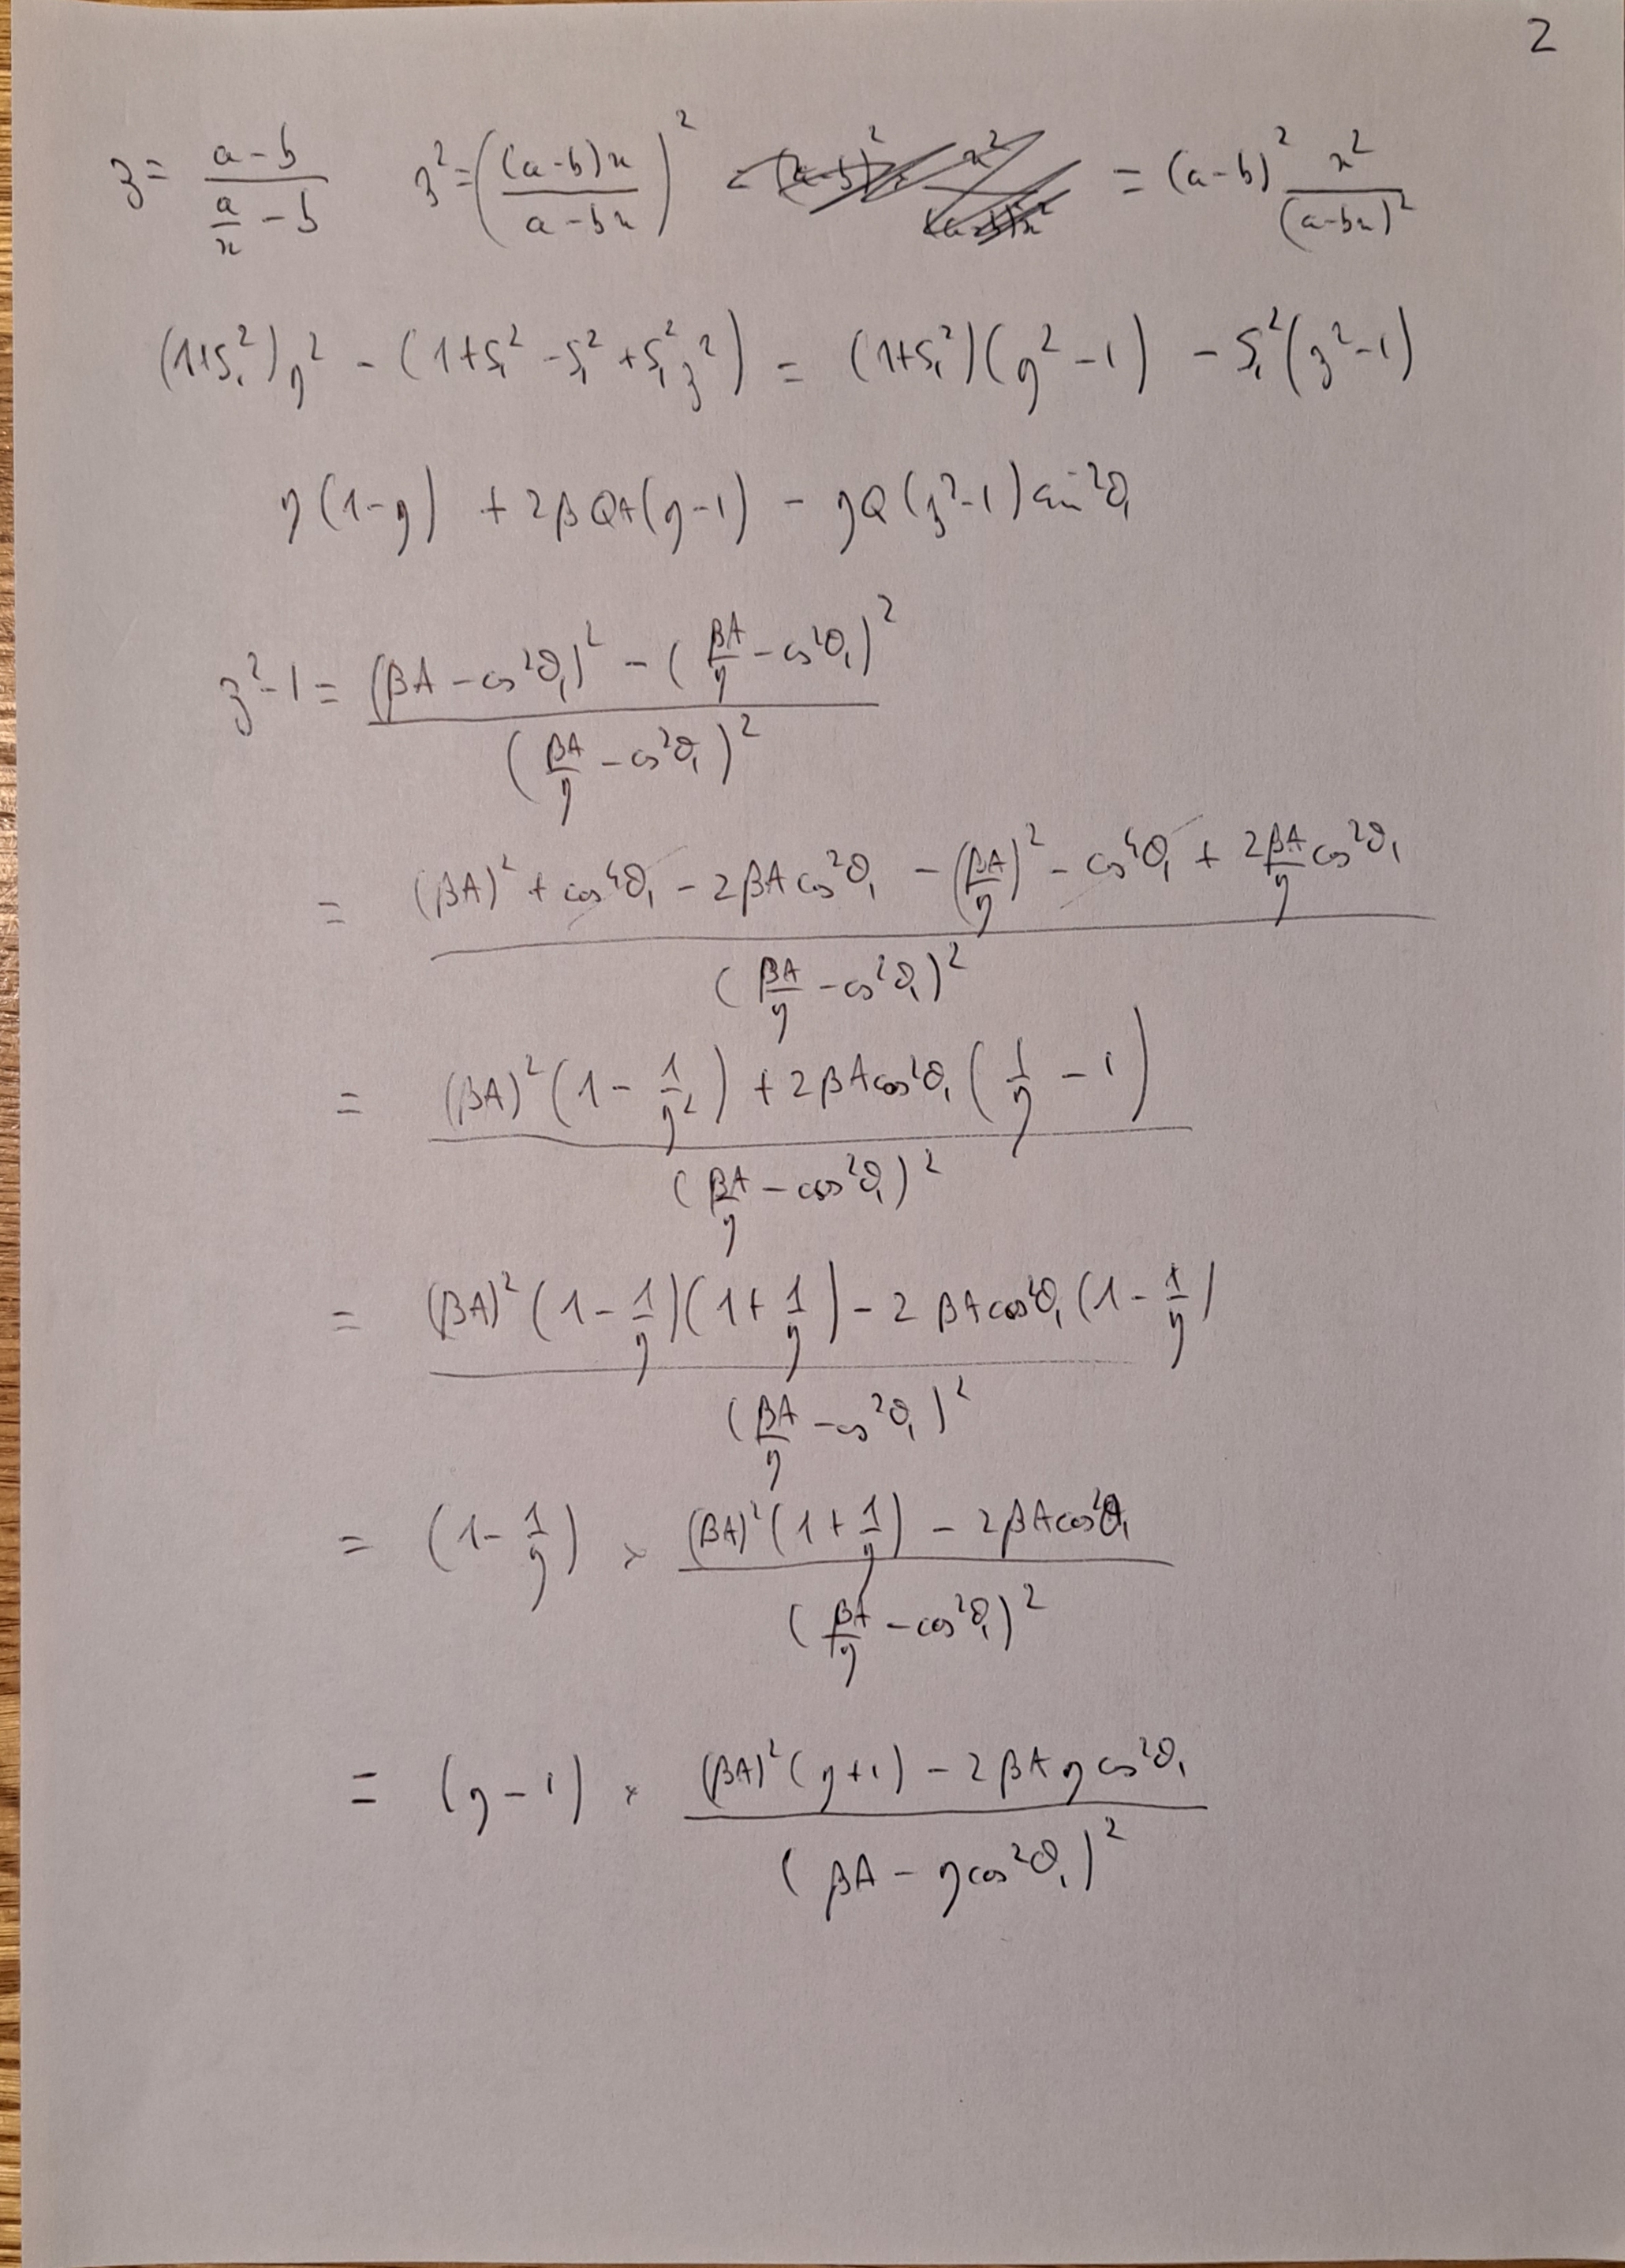 2
z = \frac{a-b}{\frac{a}{x}-b} z^2 = \left(\frac{(a-b)x}{a-bx}\right)^2 = (a-b)^2 \frac{x^2}{(a-bx)^2}
(1+S_1^2)y^2 - (1+S_1^2 - S_1^2 + S_1^2 z^2) = (1+S_1^2)(y^2-1) - S_1^2(z^2-1)
y(1-y) + 2βQA(y-1) - yQ(z^2-1) sin^2θ_1
z^2-1 = \frac{(βA - cos^2θ_1)^2 - (\frac{βA}{y} - cos^2θ_1)^2}{(\frac{βA}{y} - cos^2θ_1)^2}
= \frac{(βA)^2 + cos^4θ_1 - 2βA cos^2θ_1 - (\frac{βA}{y})^2 - cos^4θ_1 + 2\frac{βA}{y} cos^2θ_1}{(\frac{βA}{y} - cos^2θ_1)^2}
= \frac{(βA)^2(1 - \frac{1}{y^2}) + 2βA cos^2θ_1(\frac{1}{y} - 1)}{(\frac{βA}{y} - cos^2θ_1)^2}
= \frac{(βA)^2(1 - \frac{1}{y})(1 + \frac{1}{y}) - 2βA cos^2θ_1(1 - \frac{1}{y})}{(\frac{βA}{y} - cos^2θ_1)^2}
= (1 - \frac{1}{y}) × \frac{(βA)^2(1 + \frac{1}{y}) - 2βA cos^2θ_1}{(\frac{βA}{y} - cos^2θ_1)^2}
= (y-1) × \frac{(βA)^2(y+1) - 2βA y cos^2θ_1}{(βA - y cos^2θ_1)^2}